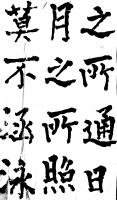 之所通日
月之所照
莫不涵泳